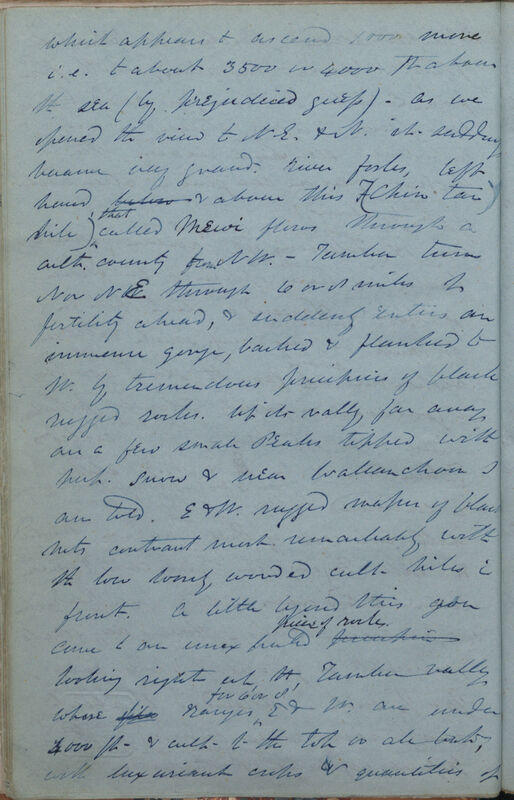 which appears to ascend 1000 more
i.e. to about 3500 or 4000 ft above
the sea (by prejudiced guess) - as we
opened the view to N.E. & N. it suddenly
became very grand. river forks, left
hand below & above this (Chin tam
hill) that called Mewi flows through a
cult. country from NW. - Tambur turns
N or NE through 6 or 8 miles of
fertility ahead, & suddenly enters an
immense gorge, backed & flanked to
W. by tremendous precipices of black
rugged rocks. Up its vally far away
are a few small Peaks tipped with
snow & near Wallanchoon I
am told. E & W. rugged masses of black
mts contrast most remarkably with
the low wooded cult. hills in
front. A little beyond this you
come to an unexpected piece of rocks. precipice
looking right up the Tambur vally
whose ranges for 6 or 8' E & W. are under
4000 ft - & cult. to the top or
with luxuriant crops & quantities of